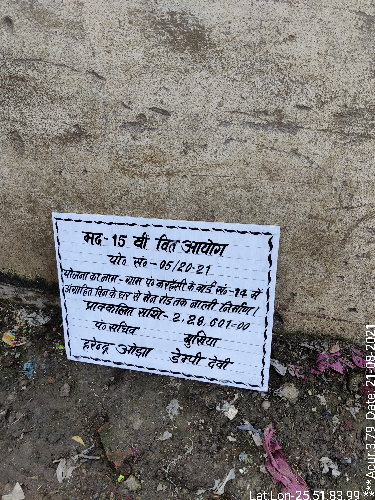 मद-15 वीं वित आयोग
यो० सं० -05/20-21
योजना का नाम - ग्राम पं० करहँसी के वार्ड सं०-14 में
के घर से मेन रोड तक नाली निर्माण।
प्राक्कलित राशि - 2,28,601=00
पं० सचिव मुखिया
हरेन्द्र ओझा देवी
Lat Lon-25 51.83.99 **
***Acur.3.79 Date: 21-08-2021